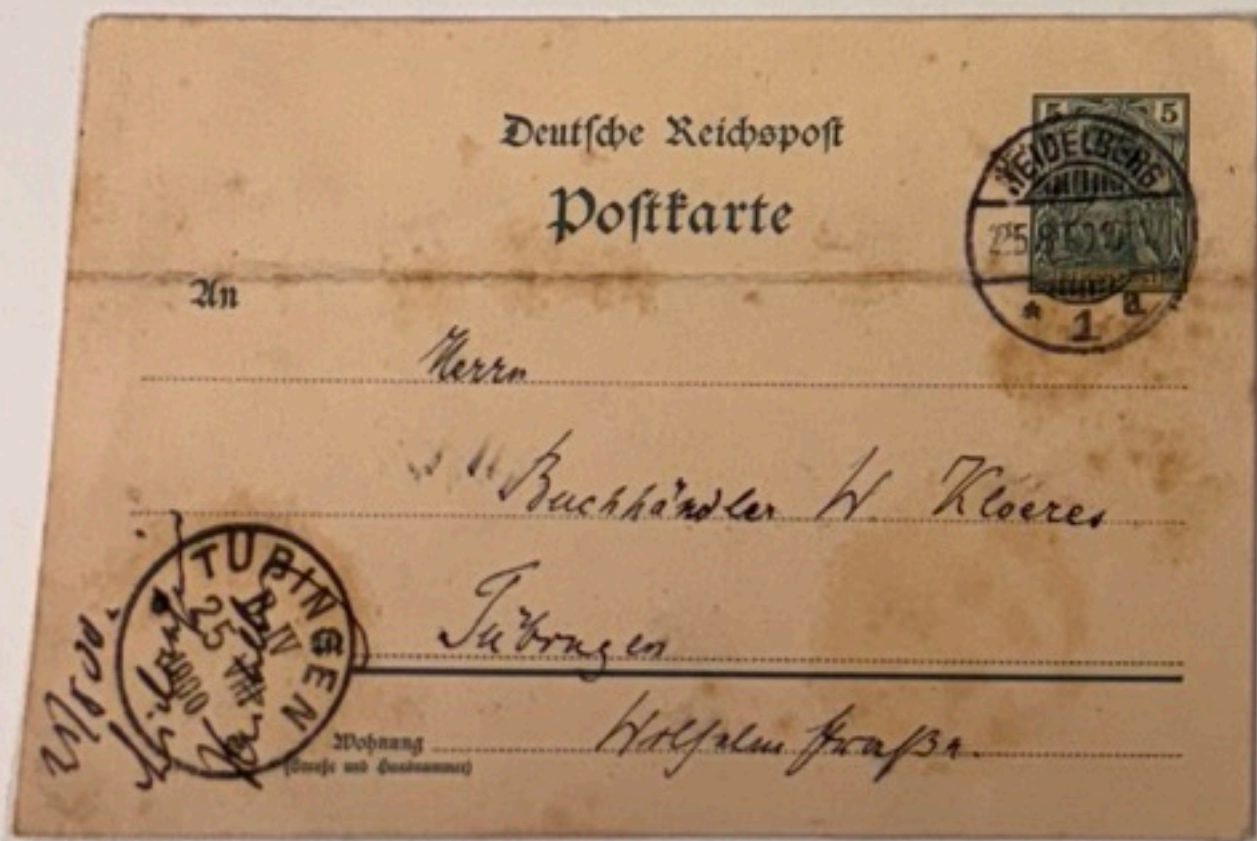 Deutsche Reichspost
Postkarte
5 5
HEIDELBERG
* 1 a
An
Herrn
Buchhändler W. Kloeres
Tübingen
Wohnung
(Straße und Hausnummer)
Wilhelmstraße.
TÜBINGEN
25